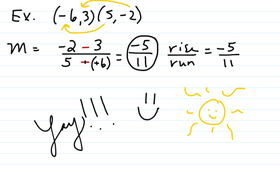 Ex. (-6,3) (5,-2)
m = \frac{-2 - 3}{5 - (-6)} = \frac{-5}{11} \frac{rise}{run} = \frac{-5}{11}
Yay!!!